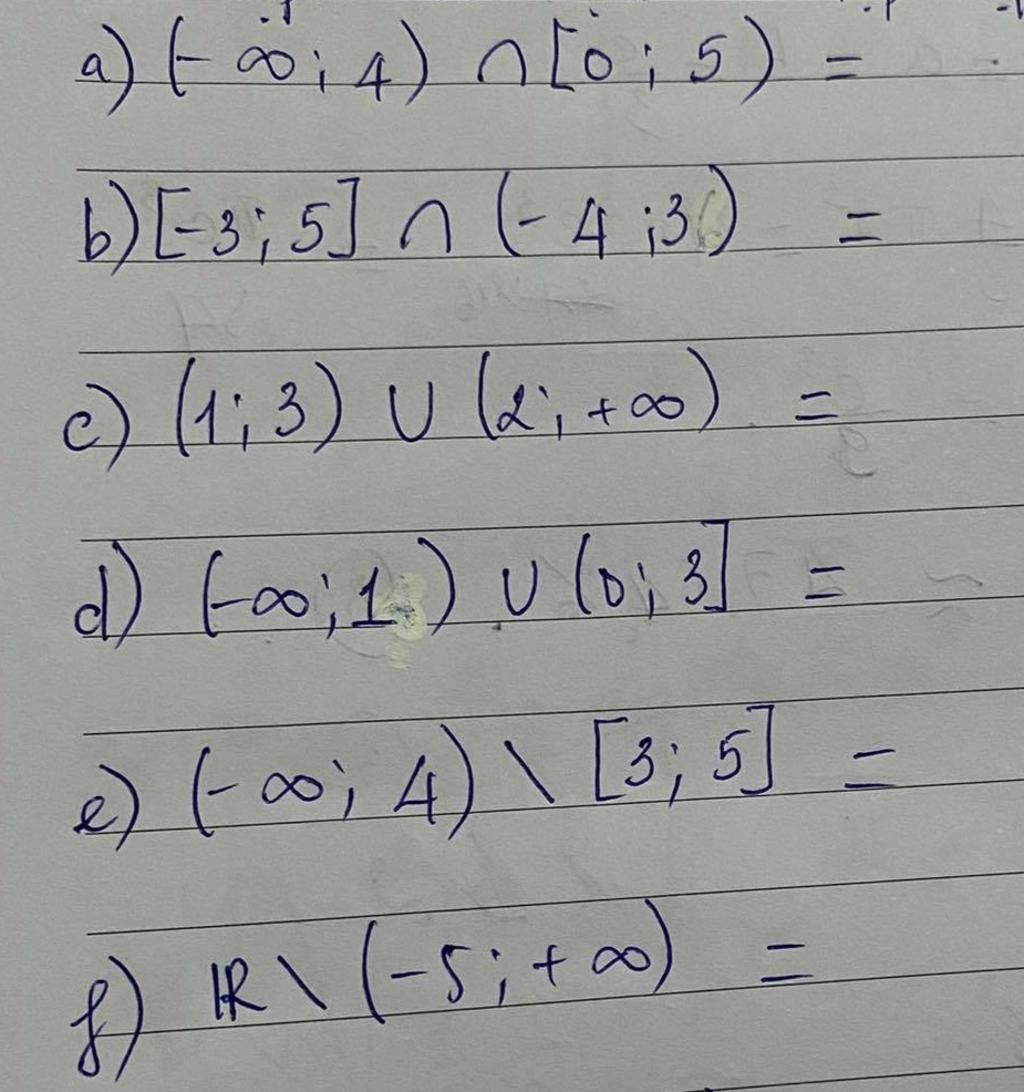 a) (-∞; 4) ∩ [0; 5) =
b) [-3; 5] ∩ (-4; 3) =
c) (1; 3) ∪ (2; +∞) =
d) (-∞; 1) ∪ (0; 3] =
e) (-∞; 4) \ [3; 5] =
f) ℝ \ (-5; +∞) =